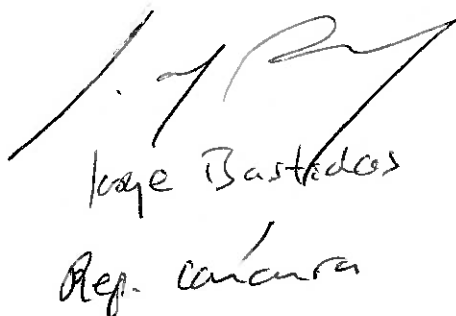 Jorge Bastidas
Rep. Cámara